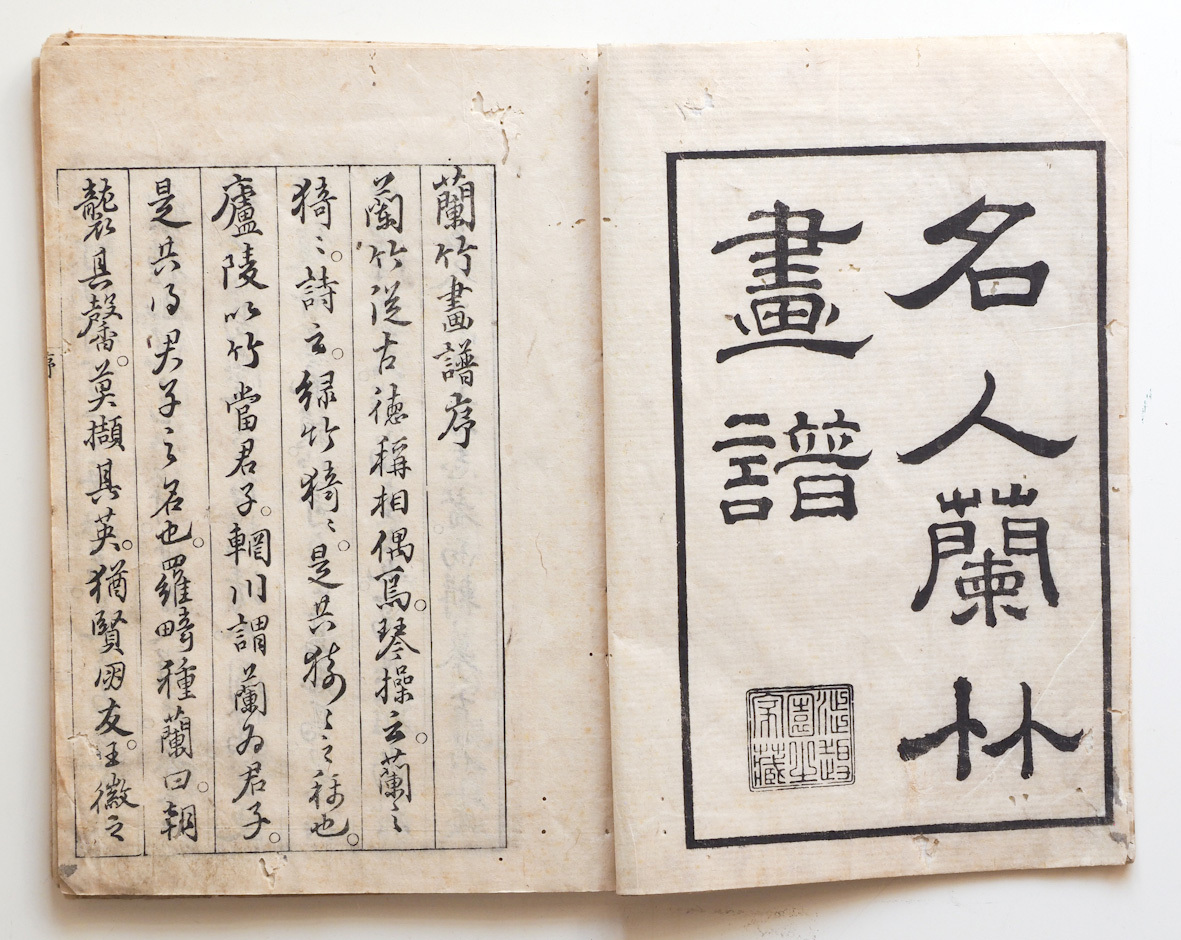 名人蘭竹
畫譜
蘭竹畫譜序
蘭竹從古徳稱相偶焉。琴操云。蘭之
猗〻。詩云。緑竹猗〻。是共猗〻之称也。
廬陵以竹當君子。輞川謂蘭為君子。
是共得君子之名也。羅畸種蘭曰。朝
襲其馨。莫擷其英。猶賢朋友。王徽之
序